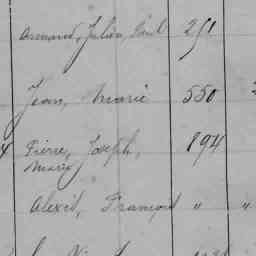 Armand, Julien, Paul 251
Jean, Marie 550
Pierre, Joseph, 194
Marie
Alexis, François " "